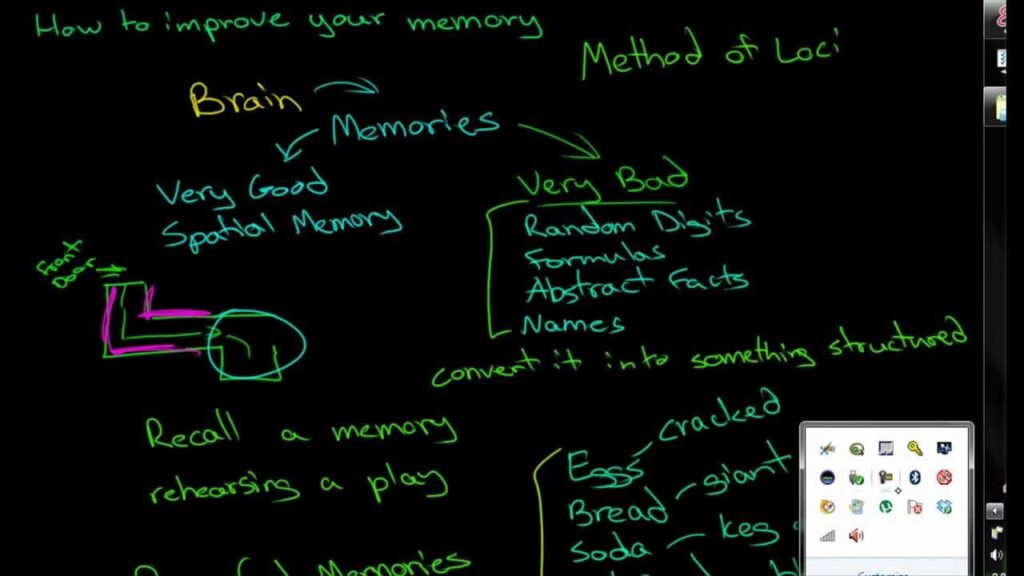 How to improve your memory
Method of Loci
Brain
Memories
Very Good
Spatial Memory
Very Bad
Random Digits
Formulas
Abstract Facts
Names
Front
Door
convert it into something structured
Recall a memory
rehearsing a play
Memories
Eggs cracked
Bread giant
Soda keg